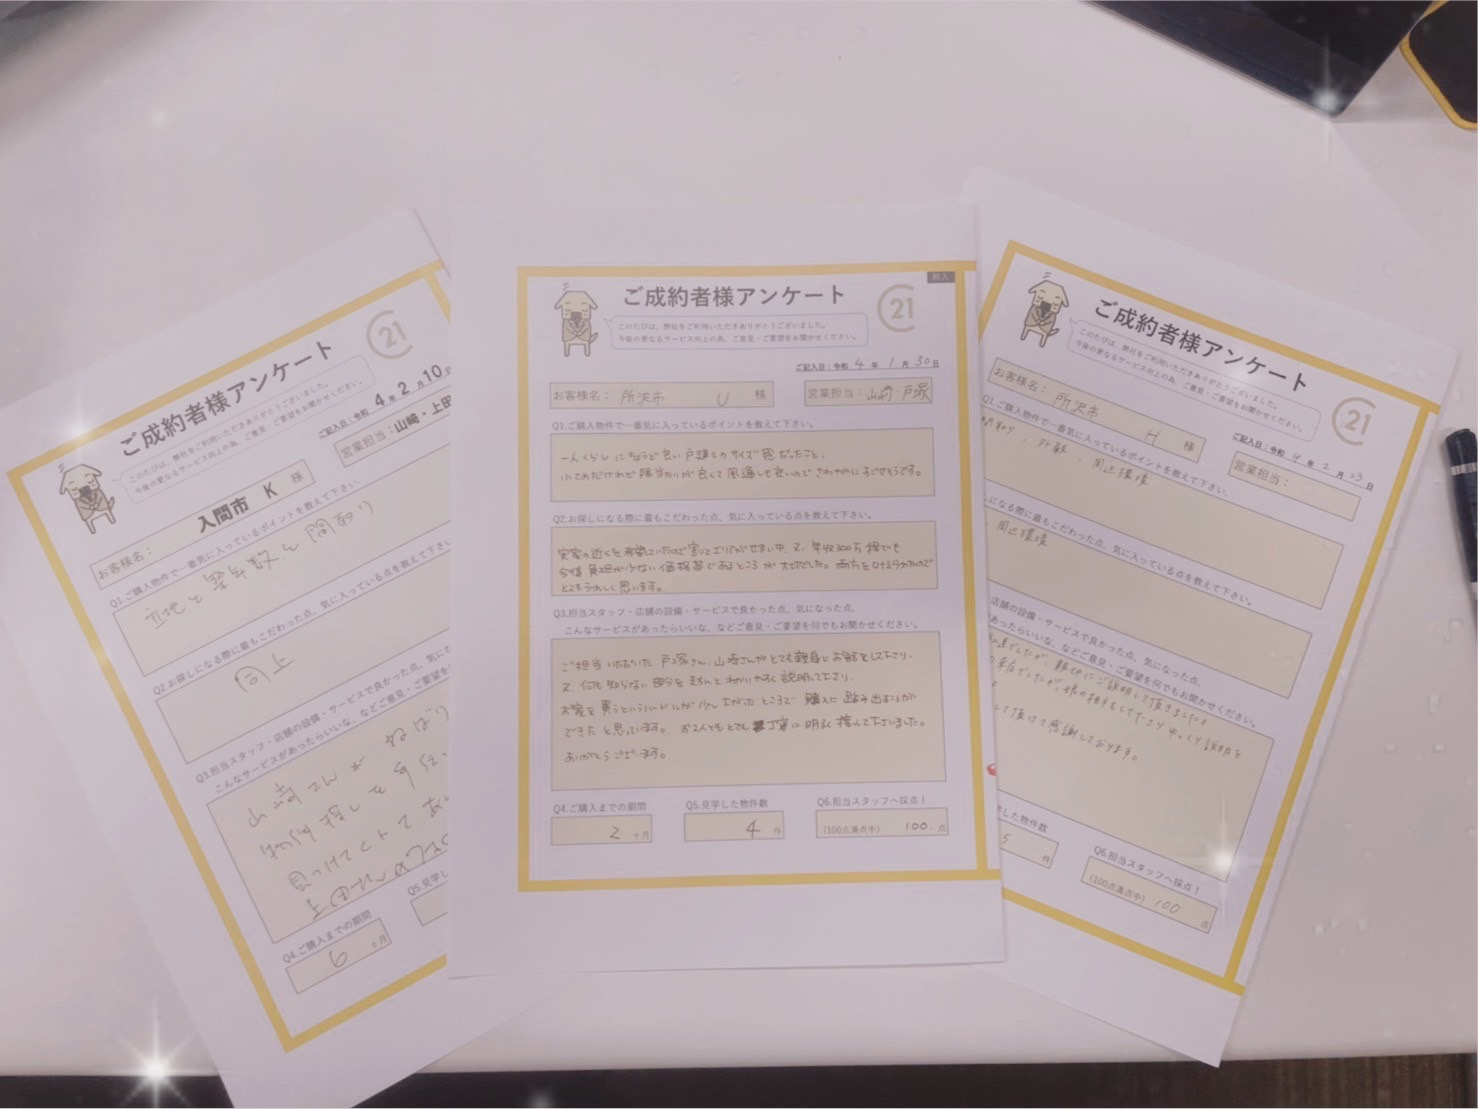 ご成約者様アンケート
21
このたびは、弊社をご利用いただきありがとうございました。
今後の更なるサービス向上の為、ご意見・ご要望をお聞かせください。
ご記入日：令和 4 年 2 月 10
お客様名： 入間市 K 様
営業担当：山崎・上田
Q1.ご購入物件で一番気に入っているポイントを教えて下さい。
立地と築年数と間取り
Q2.お探しになる際に最もこだわった点、気に入っている点を教えて
同上
Q3.担当スタッフ・店舗の設備・サービスで良かった点、気にな
こんなサービスがあったらいいな、などご意見・ご要望を何で
山崎さんが ねばり
物件探しを手伝
見つけてくれて あ
Q4.ご購入までの期間
6 ヶ月
Q5.見学し
ご成約者様アンケート
21
購入
このたびは、弊社をご利用いただきありがとうございました。
今後の更なるサービス向上の為、ご意見・ご要望をお聞かせください。
ご記入日：令和 4 年 1 月 30 日
お客様名： 所沢市 U 様
営業担当：山崎・戸塚
Q1.ご購入物件で一番気に入っているポイントを教えて下さい。
一人くらしにちょうど良い戸建てのサイズ感だったこと。
小さめだけれど陽当たりが良くて風通しも良いので さわやかにすごせそうです。
Q2.お探しになる際に最もこだわった点、気に入っている点を教えて下さい。
実家の近くを希望していたので割とエリアがせまい中、又、年収300万程でも
今後負担が少ない価格帯であるところが大切でした。両方を叶えられたので
とてもうれしく思います。
Q3.担当スタッフ・店舗の設備・サービスで良かった点、気になった点、
こんなサービスがあったらいいな、などご意見・ご要望を何でもお聞かせください。
ご担当いただいた 戸塚さん、山崎さんがとても親身にお話をして下さり、
又、何も知らない部分をきちんとわかりやすく説明して下さり
お家を買うというハードルが少し下がったところで 購入に踏み出すことが
できたと思っています。お2人ともとても 丁寧に明るく接して下さいました。
ありがとうございます。
Q4.ご購入までの期間
2 ヶ月
Q5.見学した物件数
4 件
Q6.担当スタッフへ採点！
(100点満点中) 100. 点
ご成約者様アンケート
21
このたびは、弊社をご利用いただきありがとうございました。
今後の更なるサービス向上の為、ご意見・ご要望をお聞かせください。
ご記入日：令和 4 年 2 月 23 日
お客様名： 所沢市 H 様
営業担当：
Q1.ご購入物件で一番気に入っているポイントを教えて下さい。
間取り、外観、周辺環境
になる際に最もこだわった点、気に入っている点を教えて下さい。
、周辺環境
店舗の設備・サービスで良かった点、気になった点、
があったらいいな、などご意見・ご要望を何でもお聞かせください。
でしたが、親切にご説明して頂きました。
来店でしたが、娘の相手もして下さりゆっくり説明を
して頂けて感謝しております。
学した物件数
5 件
Q6.担当スタッフへ採点！
(100点満点中) 100 点